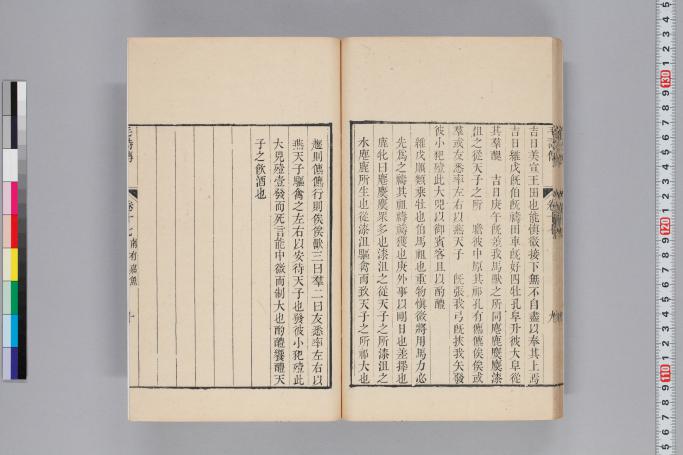 吉日美宣王田也能慎微接下無不自盡以奉其上焉
吉日維戊既伯既禱田車既好四牡孔阜升彼大阜從
其羣醜　吉日庚午既差我馬獸之所同麀鹿麌麌漆
沮之從天子之所　瞻彼中原其祁孔有儦儦俟俟或
羣或友悉率左右以燕天子　既張我弓既挾我矢發
彼小豝殪此大兕以御賓客且以酌醴
維戊順類乘牡也伯馬祖也重物慎微將用馬力必
先爲之禱其祖禱禱獲也庚外事以剛日也差擇也
鹿牝曰麀麌麌眾多也漆沮之從天子之所漆沮之
水麀鹿所生也從漆沮驅禽而致天子之所祁大也
趨則儦儦行則俟俟獸三曰羣二曰友悉率左右以
燕天子驅禽之左右以安待天子也發彼小豝殪此
大兕殪壹發而死言能中微而制大也酌醴饗醴天
子之飲酒也
卷十七
南有嘉魚
十